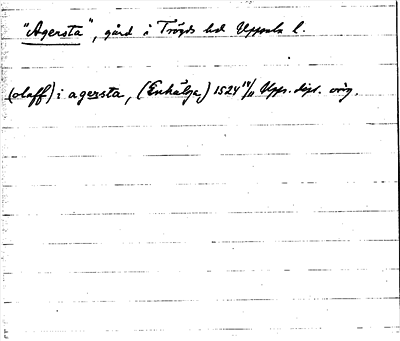 "Agersta", gård i Trögds hd Uppsala l.
(olaff) i agersta, (Enhälgæ) 1524 14/11 Upps. dipl. orig.